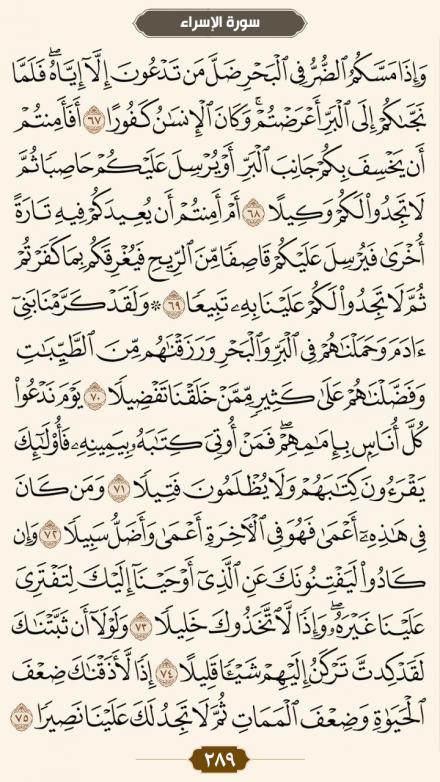 سورة الإسراء
وَإِذَا مَسَّكُمُ ٱلضُّرُّ فِى ٱلْبَحْرِ ضَلَّ مَن تَدْعُونَ إِلَّآ إِيَّاهُ ۖ فَلَمَّا
نَجَّىٰكُمْ إِلَى ٱلْبَرِّ أَعْرَضْتُمْ ۚ وَكَانَ ٱلْإِنسَٰنُ كَفُورًا ٦٧ أَفَأَمِنتُمْ
أَن يَخْسِفَ بِكُمْ جَانِبَ ٱلْبَرِّ أَوْ يُرْسِلَ عَلَيْكُمْ حَاصِبًا ثُمَّ
لَا تَجِدُوا۟ لَكُمْ وَكِيلًا ٦٨ أَمْ أَمِنتُمْ أَن يُعِيدَكُمْ فِيهِ تَارَةً
أُخْرَىٰ فَيُرْسِلَ عَلَيْكُمْ قَاصِفًا مِّنَ ٱلرِّيحِ فَيُغْرِقَكُم بِمَا كَفَرْتُمْ
ثُمَّ لَا تَجِدُوا۟ لَكُمْ عَلَيْنَا بِهِۦ تَبِيعًا ٦٩ ۞ وَلَقَدْ كَرَّمْنَا بَنِىٓ
ءَادَمَ وَحَمَلْنَٰهُمْ فِى ٱلْبَرِّ وَٱلْبَحْرِ وَرَزَقْنَٰهُم مِّنَ ٱلطَّيِّبَٰتِ
وَفَضَّلْنَٰهُمْ عَلَىٰ كَثِيرٍ مِّمَّنْ خَلَقْنَا تَفْضِيلًا ٧٠ يَوْمَ نَدْعُوا۟
كُلَّ أُنَاسٍۭ بِإِمَٰمِهِمْ ۖ فَمَنْ أُوتِىَ كِتَٰبَهُۥ بِيَمِينِهِۦ فَأُو۟لَٰٓئِكَ
يَقْرَءُونَ كِتَٰبَهُمْ وَلَا يُظْلَمُونَ فَتِيلًا ٧١ وَمَن كَانَ
فِى هَٰذِهِۦٓ أَعْمَىٰ فَهُوَ فِى ٱلْءَاخِرَةِ أَعْمَىٰ وَأَضَلُّ سَبِيلًا ٧٢ وَإِن
كَادُوا۟ لَيَفْتِنُونَكَ عَنِ ٱلَّذِىٓ أَوْحَيْنَآ إِلَيْكَ لِتَفْتَرِىَ
عَلَيْنَا غَيْرَهُۥ ۖ وَإِذًا لَّٱتَّخَذُوكَ خَلِيلًا ٧٣ وَلَوْلَآ أَن ثَبَّتْنَٰكَ
لَقَدْ كِدتَّ تَرْكَنُ إِلَيْهِمْ شَيْـًٔا قَلِيلًا ٧٤ إِذًا لَّأَذَقْنَٰكَ ضِعْفَ
ٱلْحَيَوٰةِ وَضِعْفَ ٱلْمَمَاتِ ثُمَّ لَا تَجِدُ لَكَ عَلَيْنَا نَصِيرًا ٧٥
٢٨٩